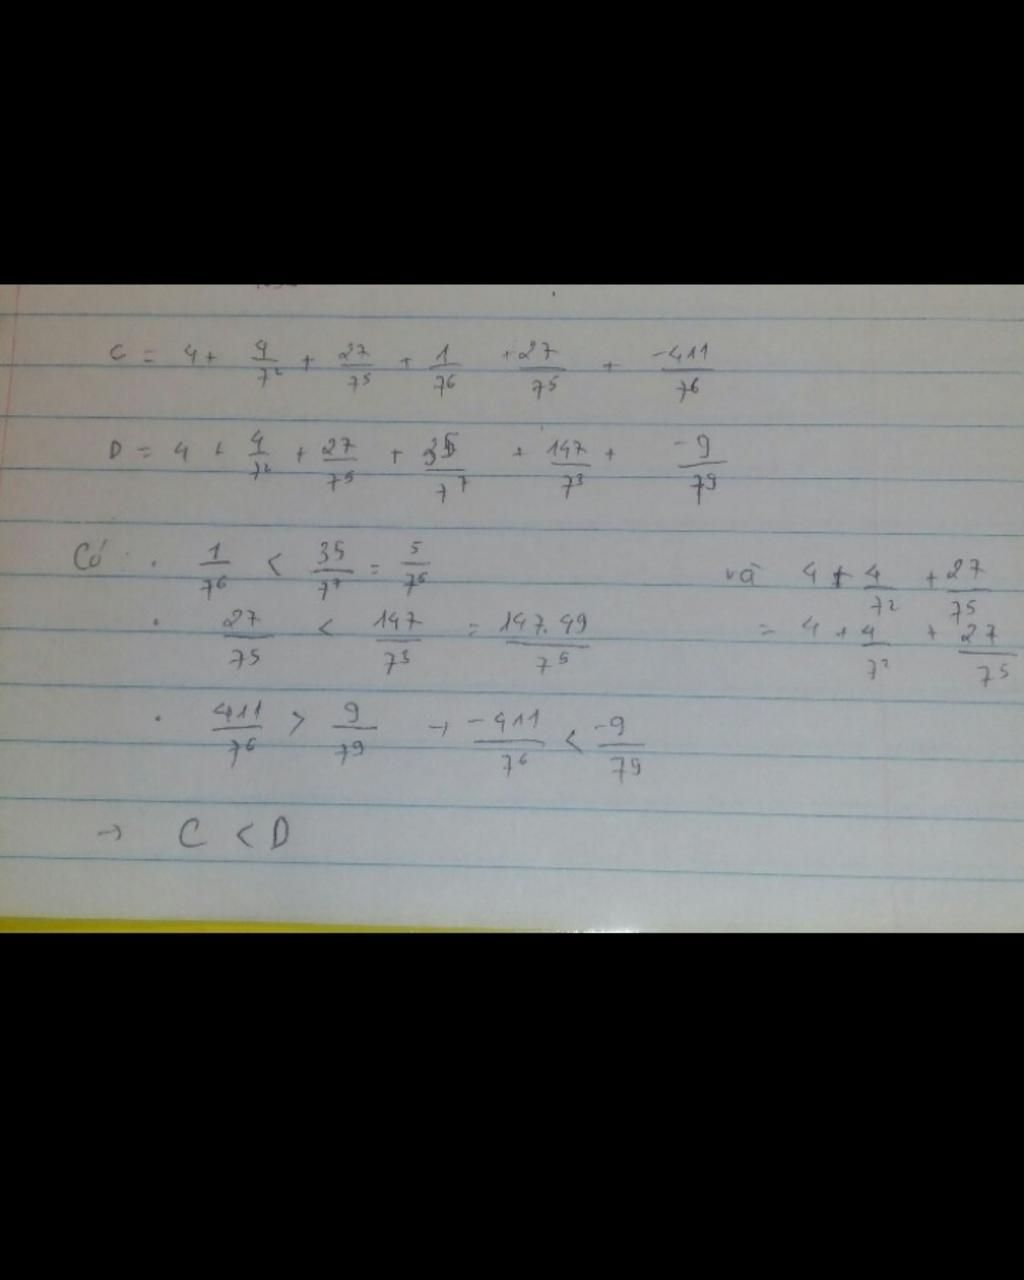 C = 4 + 4/7² + 27/7⁵ + 1/7⁶ + 27/7⁵ + -411/7⁶
D = 4 + 4/7² + 27/7⁵ + 35/7⁷ + 147/7³ + -9/7⁹
Có : . 1/7⁶ < 35/7⁷ = 5/7⁶ và 4 + 4/7² + 27/7⁵
. 27/7⁵ < 147/7³ = 147.49/7⁵ = 4 + 4/7² + 27/7⁵
. 411/7⁶ > 9/7⁹ → -411/7⁶ < -9/7⁹
→ C < D